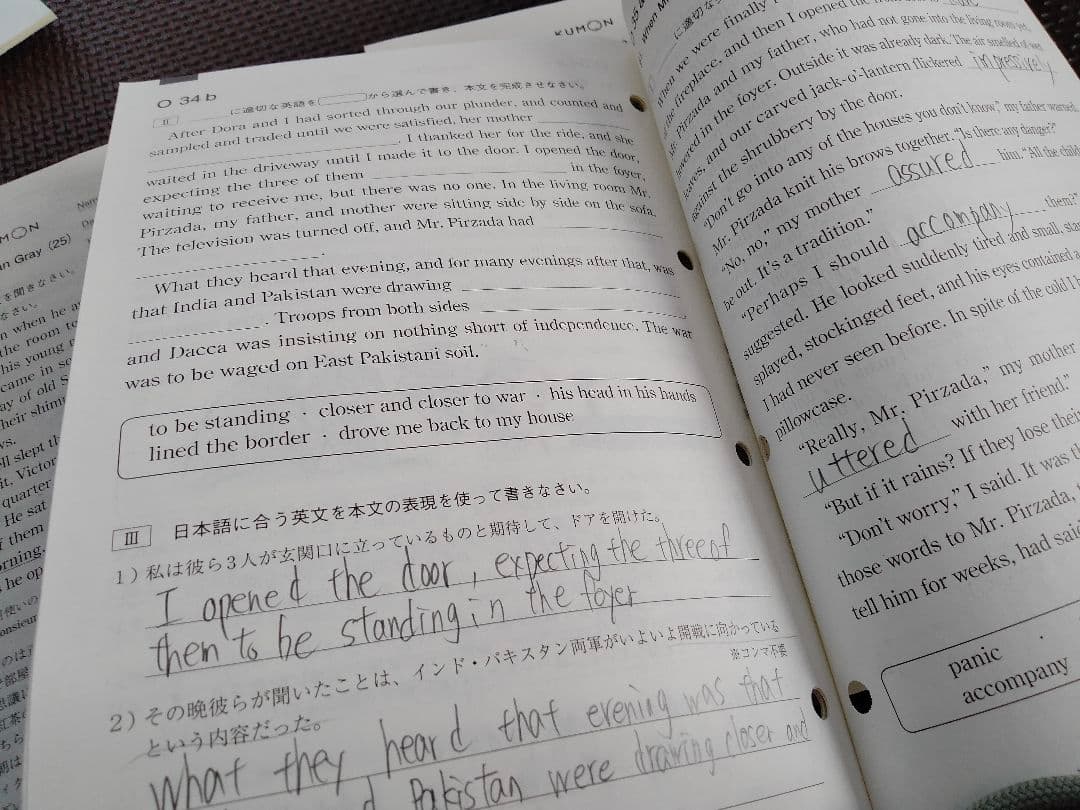 KUMON
O 34 b
II に適切な英語を から選んで書き、本文を完成させなさい。
After Dora and I had sorted through our plunder, and counted and
sampled and traded until we were satisfied, her mother
. I thanked her for the ride, and she
waited in the driveway until I made it to the door. I opened the door,
expecting the three of them in the foyer,
waiting to receive me, but there was no one. In the living room Mr.
Pirzada, my father, and mother were sitting side by side on the sofa.
The television was turned off, and Mr. Pirzada had
.
What they heard that evening, and for many evenings after that, was
that India and Pakistan were drawing
. Troops from both sides
and Dacca was insisting on nothing short of independence. The war
was to be waged on East Pakistani soil.
to be standing · closer and closer to war · his head in his hands
lined the border · drove me back to my house
III 日本語に合う英文を本文の表現を使って書きなさい。
1) 私は彼ら3人が玄関口に立っているものと期待して、ドアを開けた。
I opened the door, expecting the three of
them to be standing in the foyer
2) その晩彼らが聞いたことは、インド・パキスタン両軍がいよいよ開戦に向かっている
※コンマ不要
という内容だった。
what they heard that evening was that
Pakistan were drawing closer and
when we were finally
fireplace, and then I opened the
Pirzada and my father, who had not gone into the living room yet,
in the foyer. Outside it was already dark. The air smelled of wet
and our carved jack-o'-lantern flickered impressively
against the shrubbery by the door.
"Don't go into any of the houses you don't know," my father warned.
Mr. Pirzada knit his brows together. "Is there any danger?"
"No, no," my mother assured him. "All the
be out. It's a tradition."
"Perhaps I should accompany them?"
suggested. He looked suddenly tired and small,
splayed, stockinged feet, and his eyes contained a
I had never seen before. In spite of the cold I
pillowcase.
"Really, Mr. Pirzada," my mother
uttered with her friend."
"But if it rains? If they lose their
"Don't worry," I said. It was the
those words to Mr. Pirzada,
tell him for weeks, had said
panic ·
accompany
Gray (25)